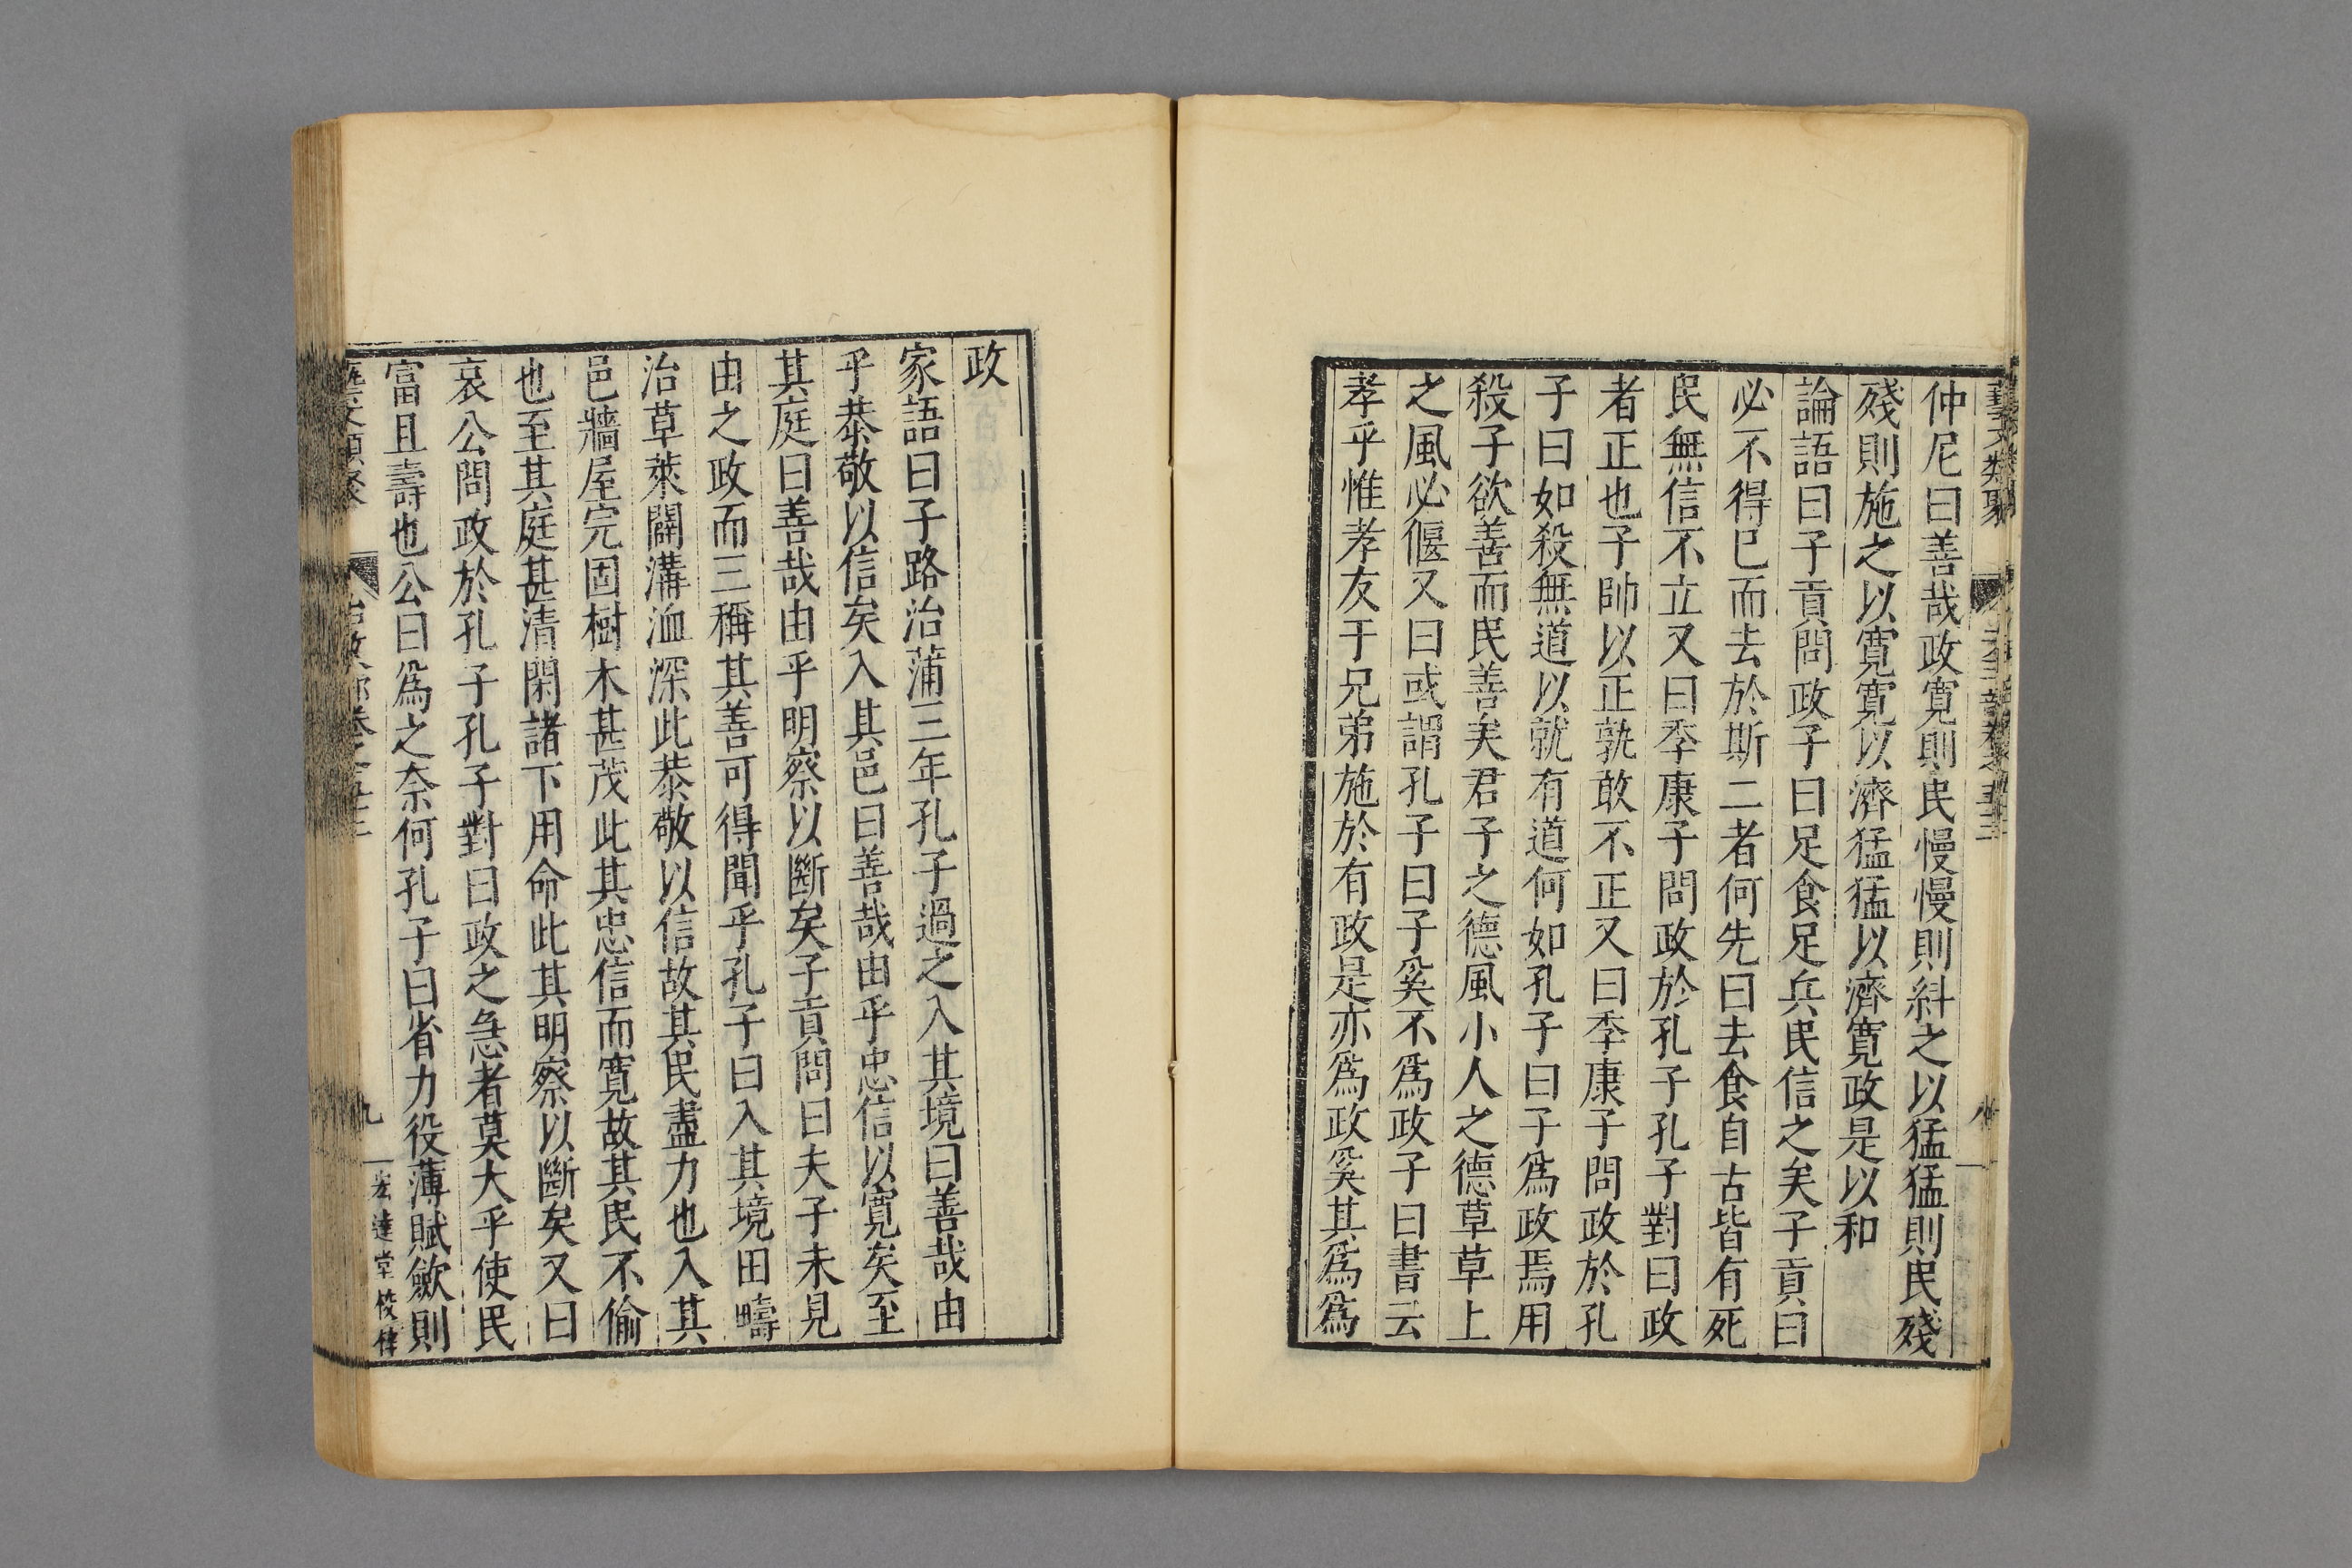 仲尼曰善哉政寛則民慢慢則糾之以猛猛則民殘
殘則施之以寛寛以濟猛猛以濟寛政是以和
論語曰子貢問政子曰足食足兵民信之矣子貢曰
必不得已而去於斯二者何先曰去食自古皆有死
民無信不立又曰季康子問政於孔子孔子對曰政
者正也子帥以正孰敢不正又曰季康子問政於孔
子曰如殺無道以就有道何如孔子曰子爲政焉用
殺子欲善而民善矣君子之德風小人之德草草上
之風必偃又曰或謂孔子曰子奚不爲政子曰書云
孝乎惟孝友于兄弟施於有政是亦爲政奚其爲爲
政
家語曰子路治蒲三年孔子過之入其境曰善哉由
乎恭敬以信矣入其邑曰善哉由乎忠信以寛矣至
其庭曰善哉由乎明察以斷矣子貢問曰夫子未見
由之政而三稱其善可得聞乎孔子曰入其境田疇
治草萊闢溝洫深此恭敬以信故其民盡力也入其
邑牆屋完固樹木甚茂此其忠信而寛故其民不偷
也至其庭甚清閑諸下用命此其明察以斷矣又曰
哀公問政於孔子孔子對曰政之急者莫大乎使民
富且壽也公曰爲之奈何孔子曰省力役薄賦歛則
九 宏達堂校律